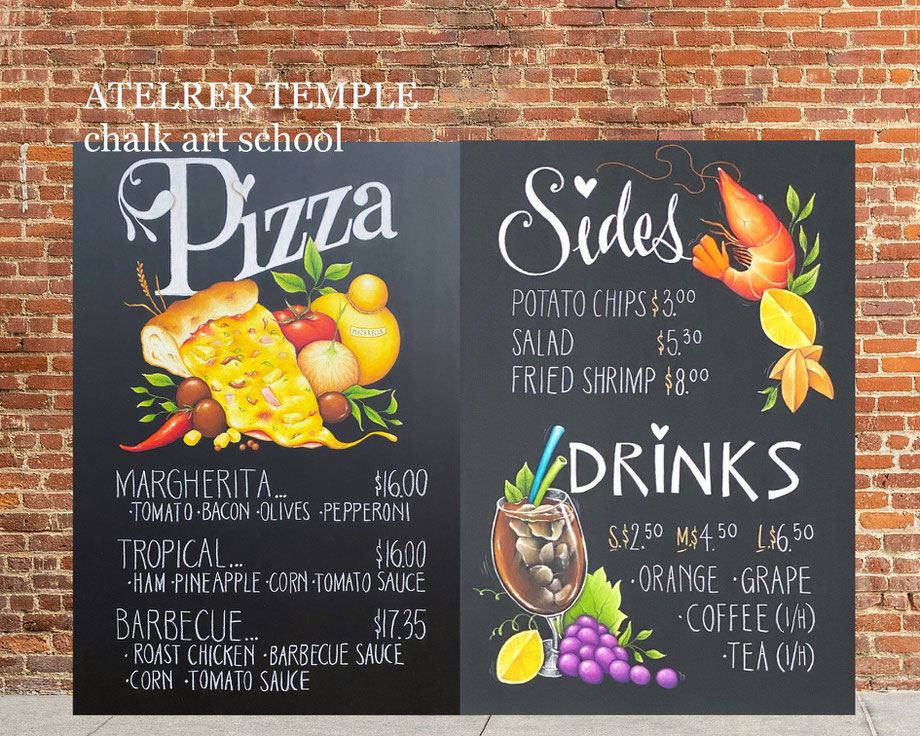 ATELRER TEMPLE
chalk art school
Pizza
MOZARELLE
MARGHERITA... $16.00
·TOMATO ·BACON ·OLIVES ·PEPPERONI
TROPICAL... $16.00
·HAM ·PINEAPPLE ·CORN ·TOMATO SAUCE
BARBECUE... $17.35
·ROAST CHICKEN ·BARBECUE SAUCE
·CORN ·TOMATO SAUCE
Sides
POTATO CHIPS $3.00
SALAD $5.30
FRIED SHRIMP $8.00
DRiNKS
S.$2.50 M.$4.50 L.$6.50
·ORANGE ·GRAPE
·COFFEE (I/H)
·TEA (I/H)